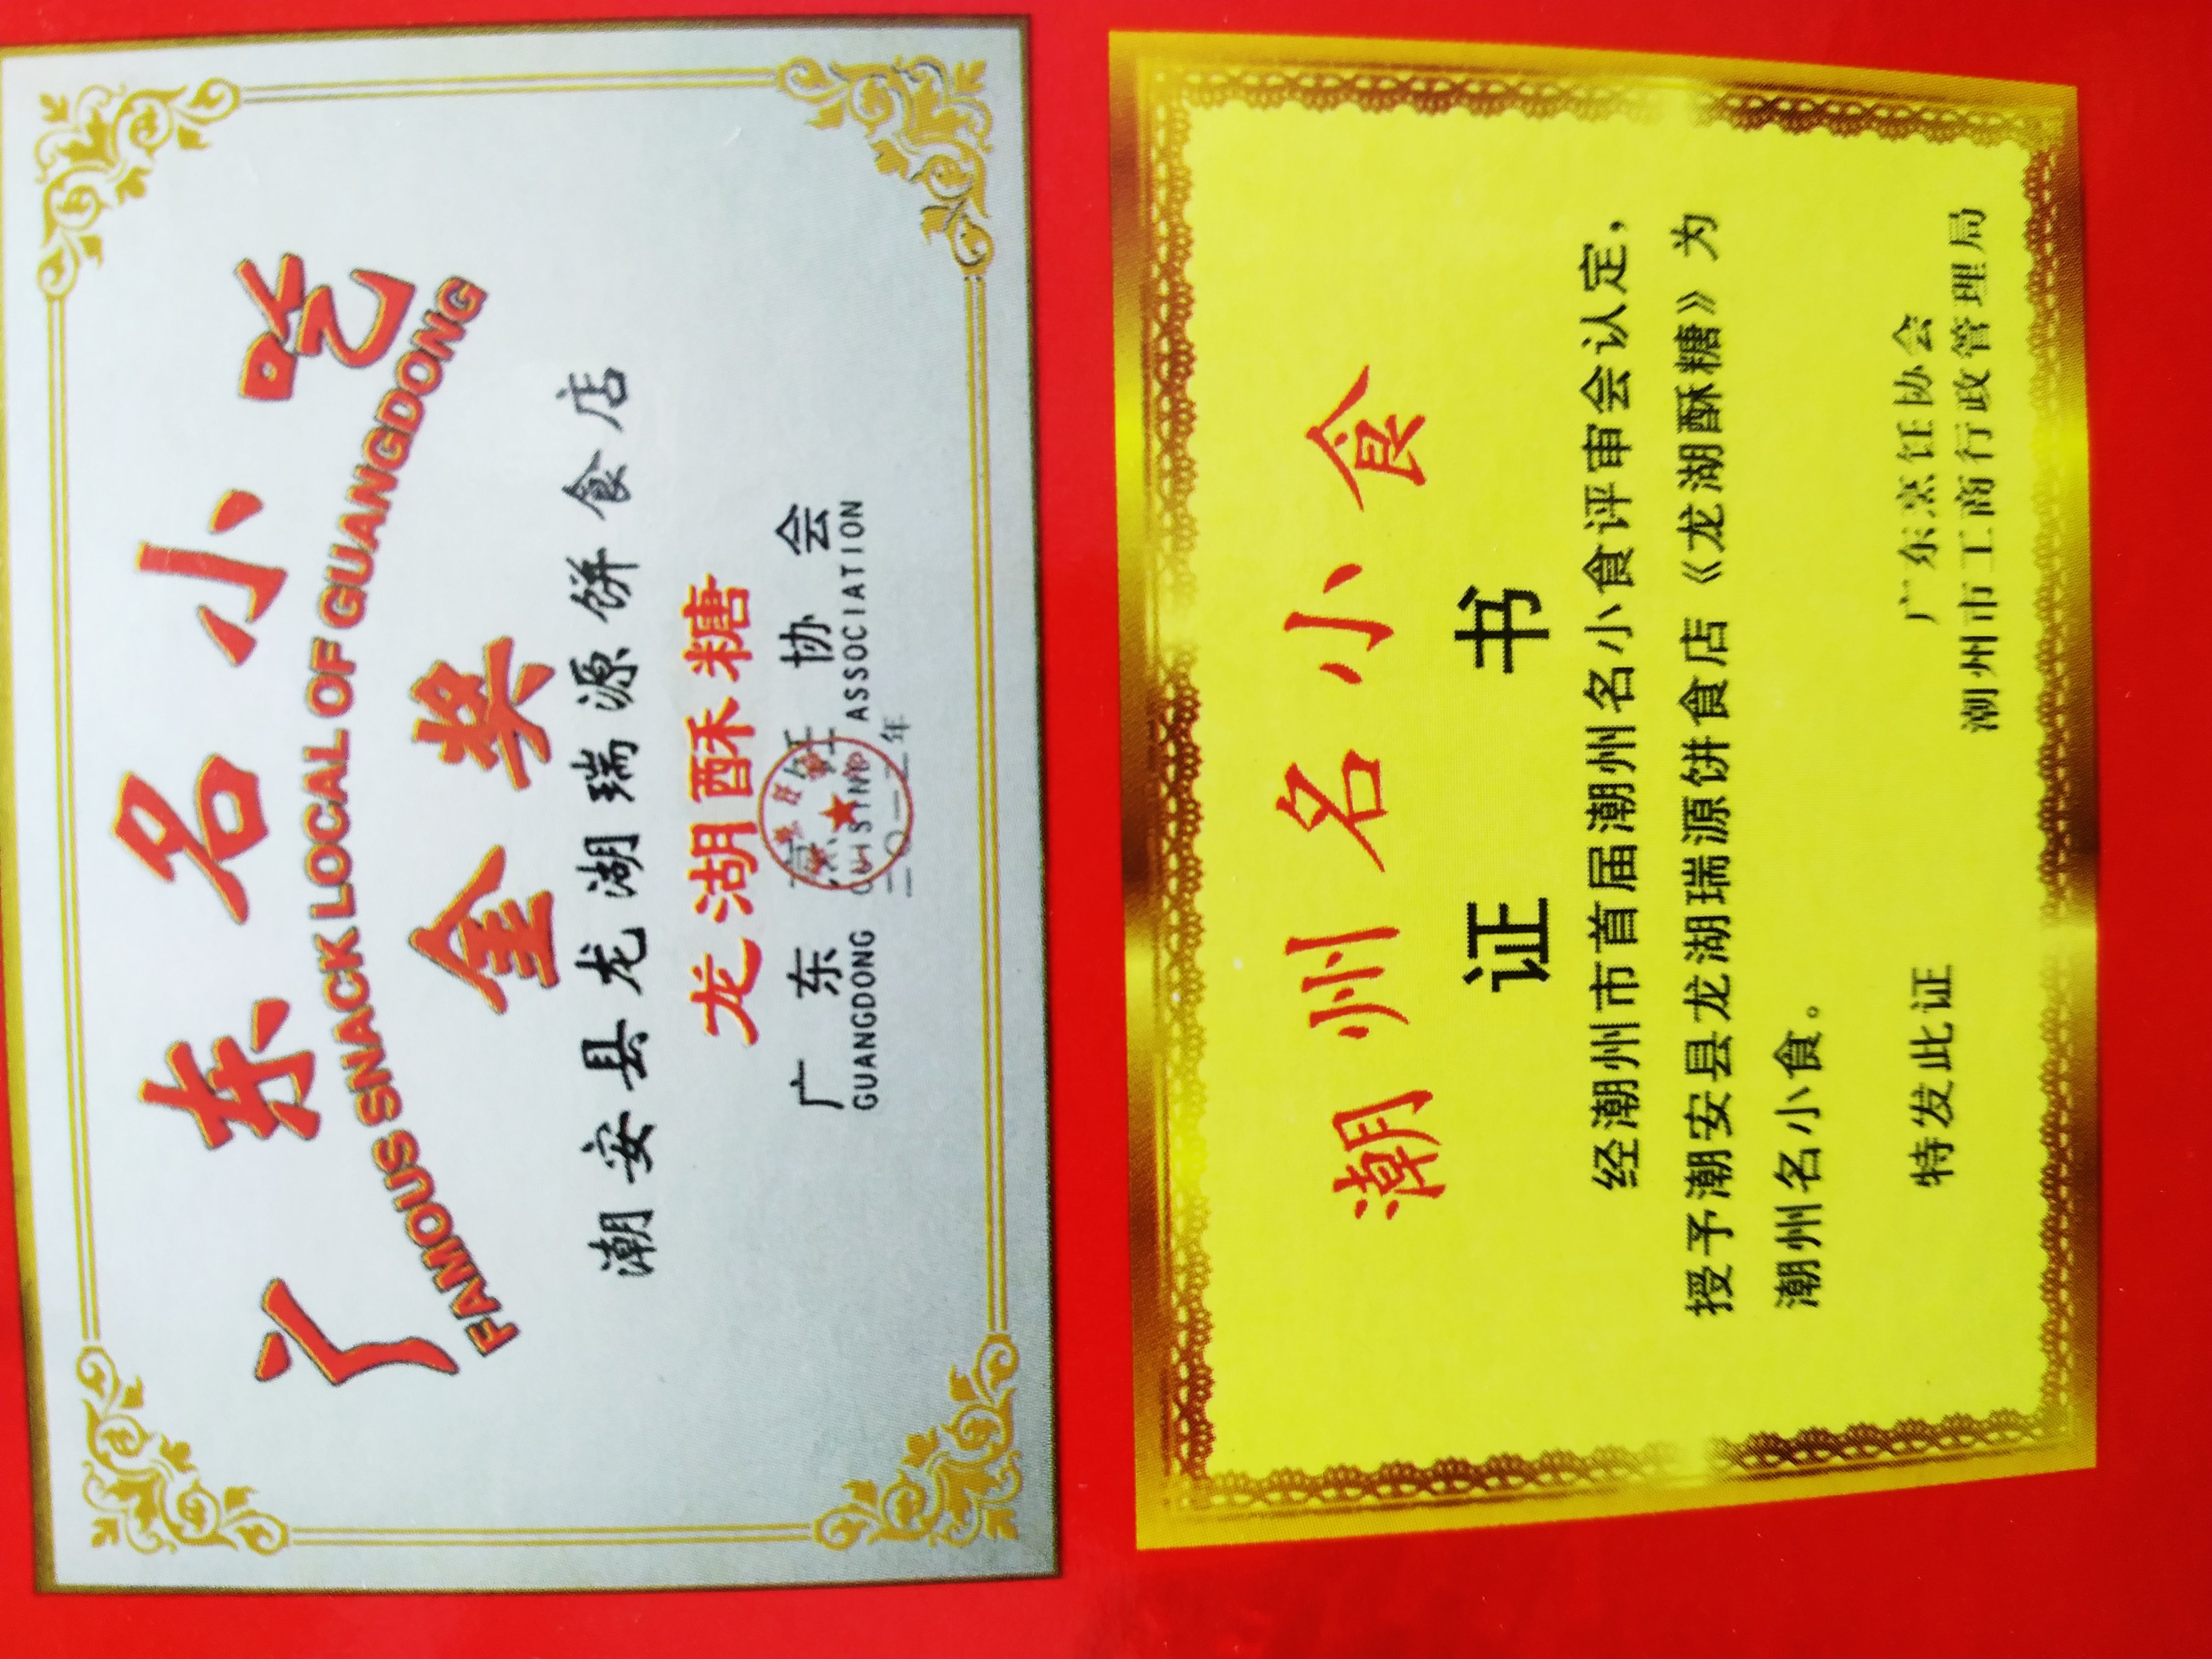 广东名小吃
FAMOUS SNACK LOCAL OF GUANGDONG
金奖
潮安县龙湖瑞源饼食店
龙湖酥糖
广东烹饪协会
GUANGDONG CUISINE ASSOCIATION
潮州名小食
证书
经潮州市首届潮州名小食评审会认定，
授予潮安县龙湖瑞源饼食店《龙湖酥糖》为
潮州名小食。
特发此证
广东烹饪协会
潮州市工商行政管理局